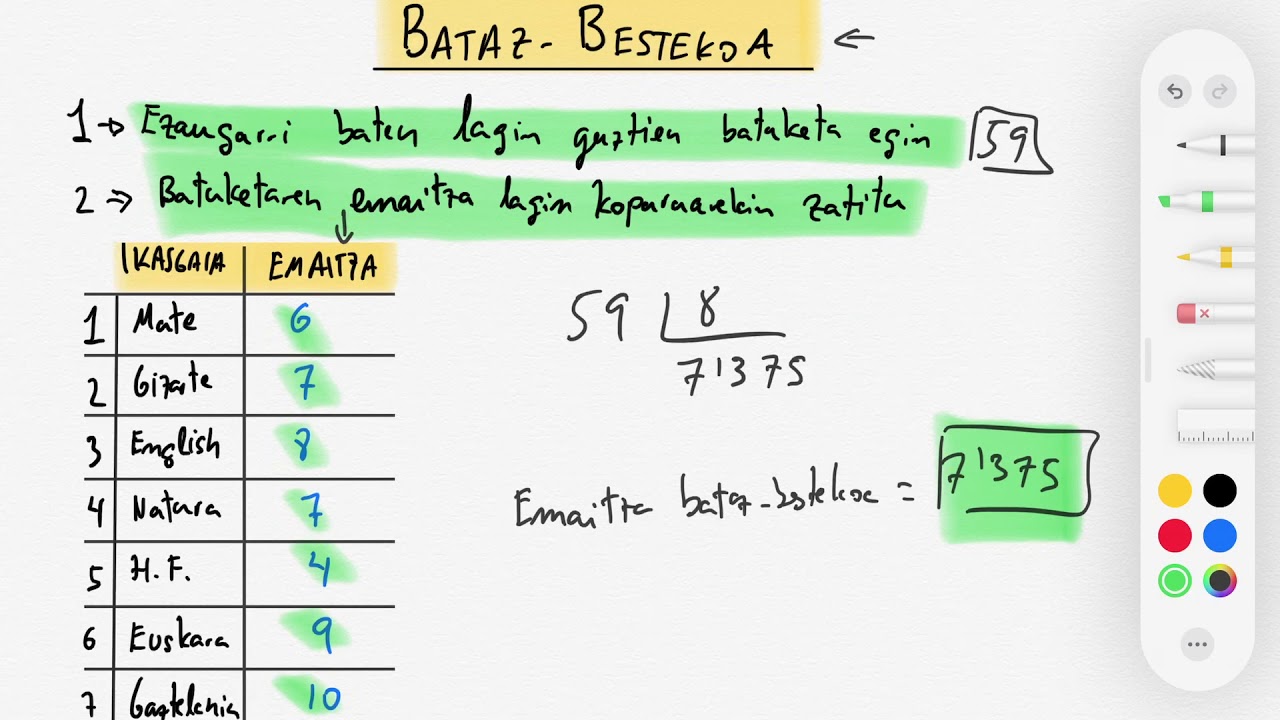 BATAZ-BESTEKOA ←
1 → Ezaugarri baten lagin guztien batuketa egin 59
2 → Batuketaren emaitza lagin kopuruarekin zatitu
IKASGAIA EMAITZA
1 Mate 6
2 Gizarte 7
3 English 8
4 Natura 7
5 H.F. 4
6 Euskara 9
7 Gaztelania 10
59 8
7'375
Emaitza bataz-bestekoa = 7'375